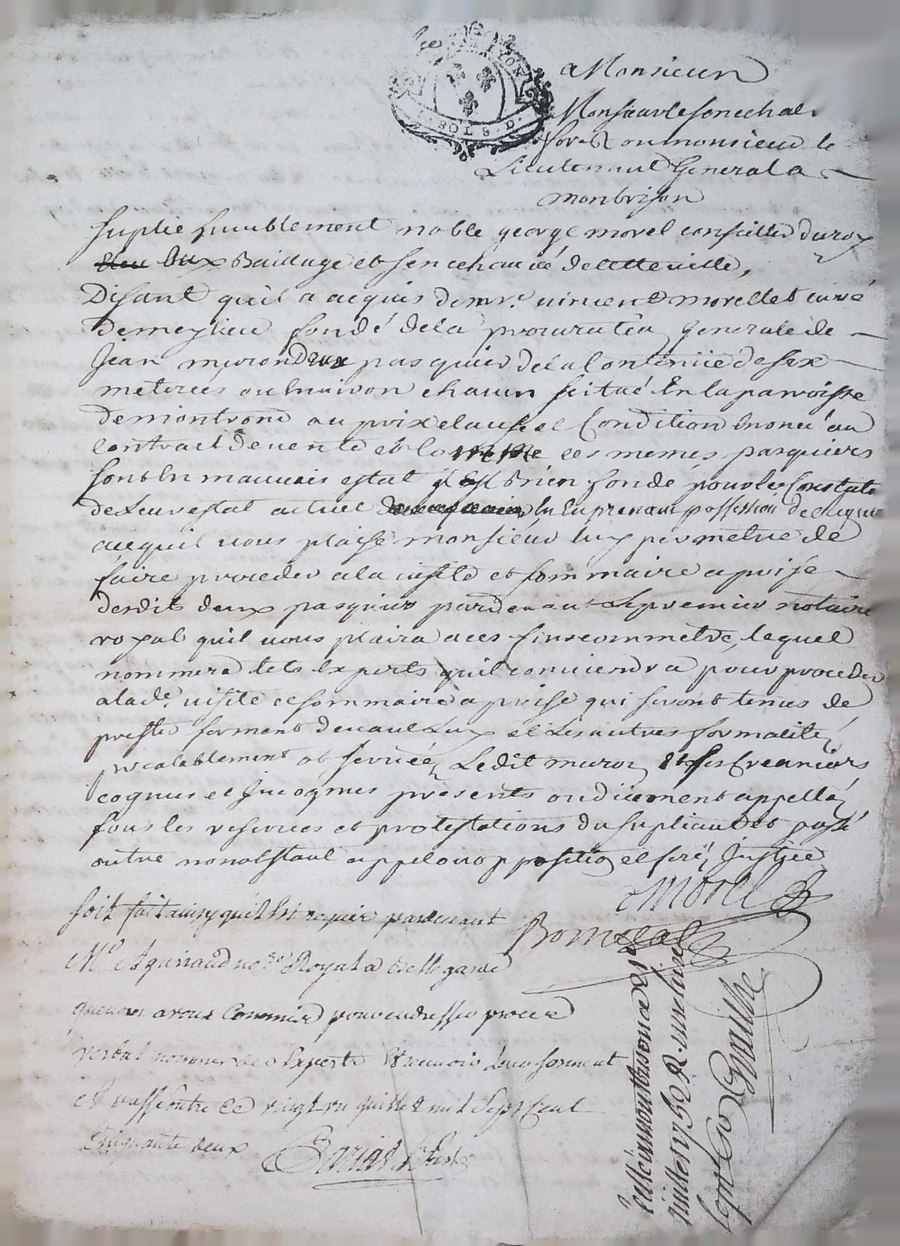 LYON
SOLS D
a Monsieur
Monsieur le senechal
forez ou monsieur le
Lieutenant General a
monbrison
suplie humblement noble george morel conseiller du roy
aux Baillage et senechaucé de cette ville,
Disant quil a acquis de mr. vincend morellet curé
de meylieu fondé de la procuraõn generale de
Jean muron deux pasquier de la Contenüe de six
metérées ou environ chacun scitué En la parroisse
de montrond au prix clause et Condition Enoncé au
contract de vente et comme ces memes pasquiers
sont en mauvais estat il Est bien fondé pour les Constate
de Leur estat actuel En En prenant possession de cequi
ace quil vous plaise monsieur luy permetre de
faire proceder a la visite et sommaire a prise
desdit deux pasquier pardevant Le premier notaire
royal quil vous plaira a ces fins commetre, lequel
nommera tels Experts quil conviendra pour proceder
a lade. visite et sommaire a prise qui seront tenus de
prester serment devant Luy et Les autres formalité
prealablement observée, Ledit muron Et ses Creanciers
cognus et Incognus présents ou düement appellé
sous les reserves et protestations du supliant et passé
outre nonobstant appel ou oppositiõ et feré Justice
Morel
soit fait ainsy quil Est requis pardevant
Me Royal a Bellegarde
que nous avons Commis pour en dresser proced
verbal nommer des Experts Et recevoir Leur serment
ce vingt un juillet mil sept cent
Cinquante deux